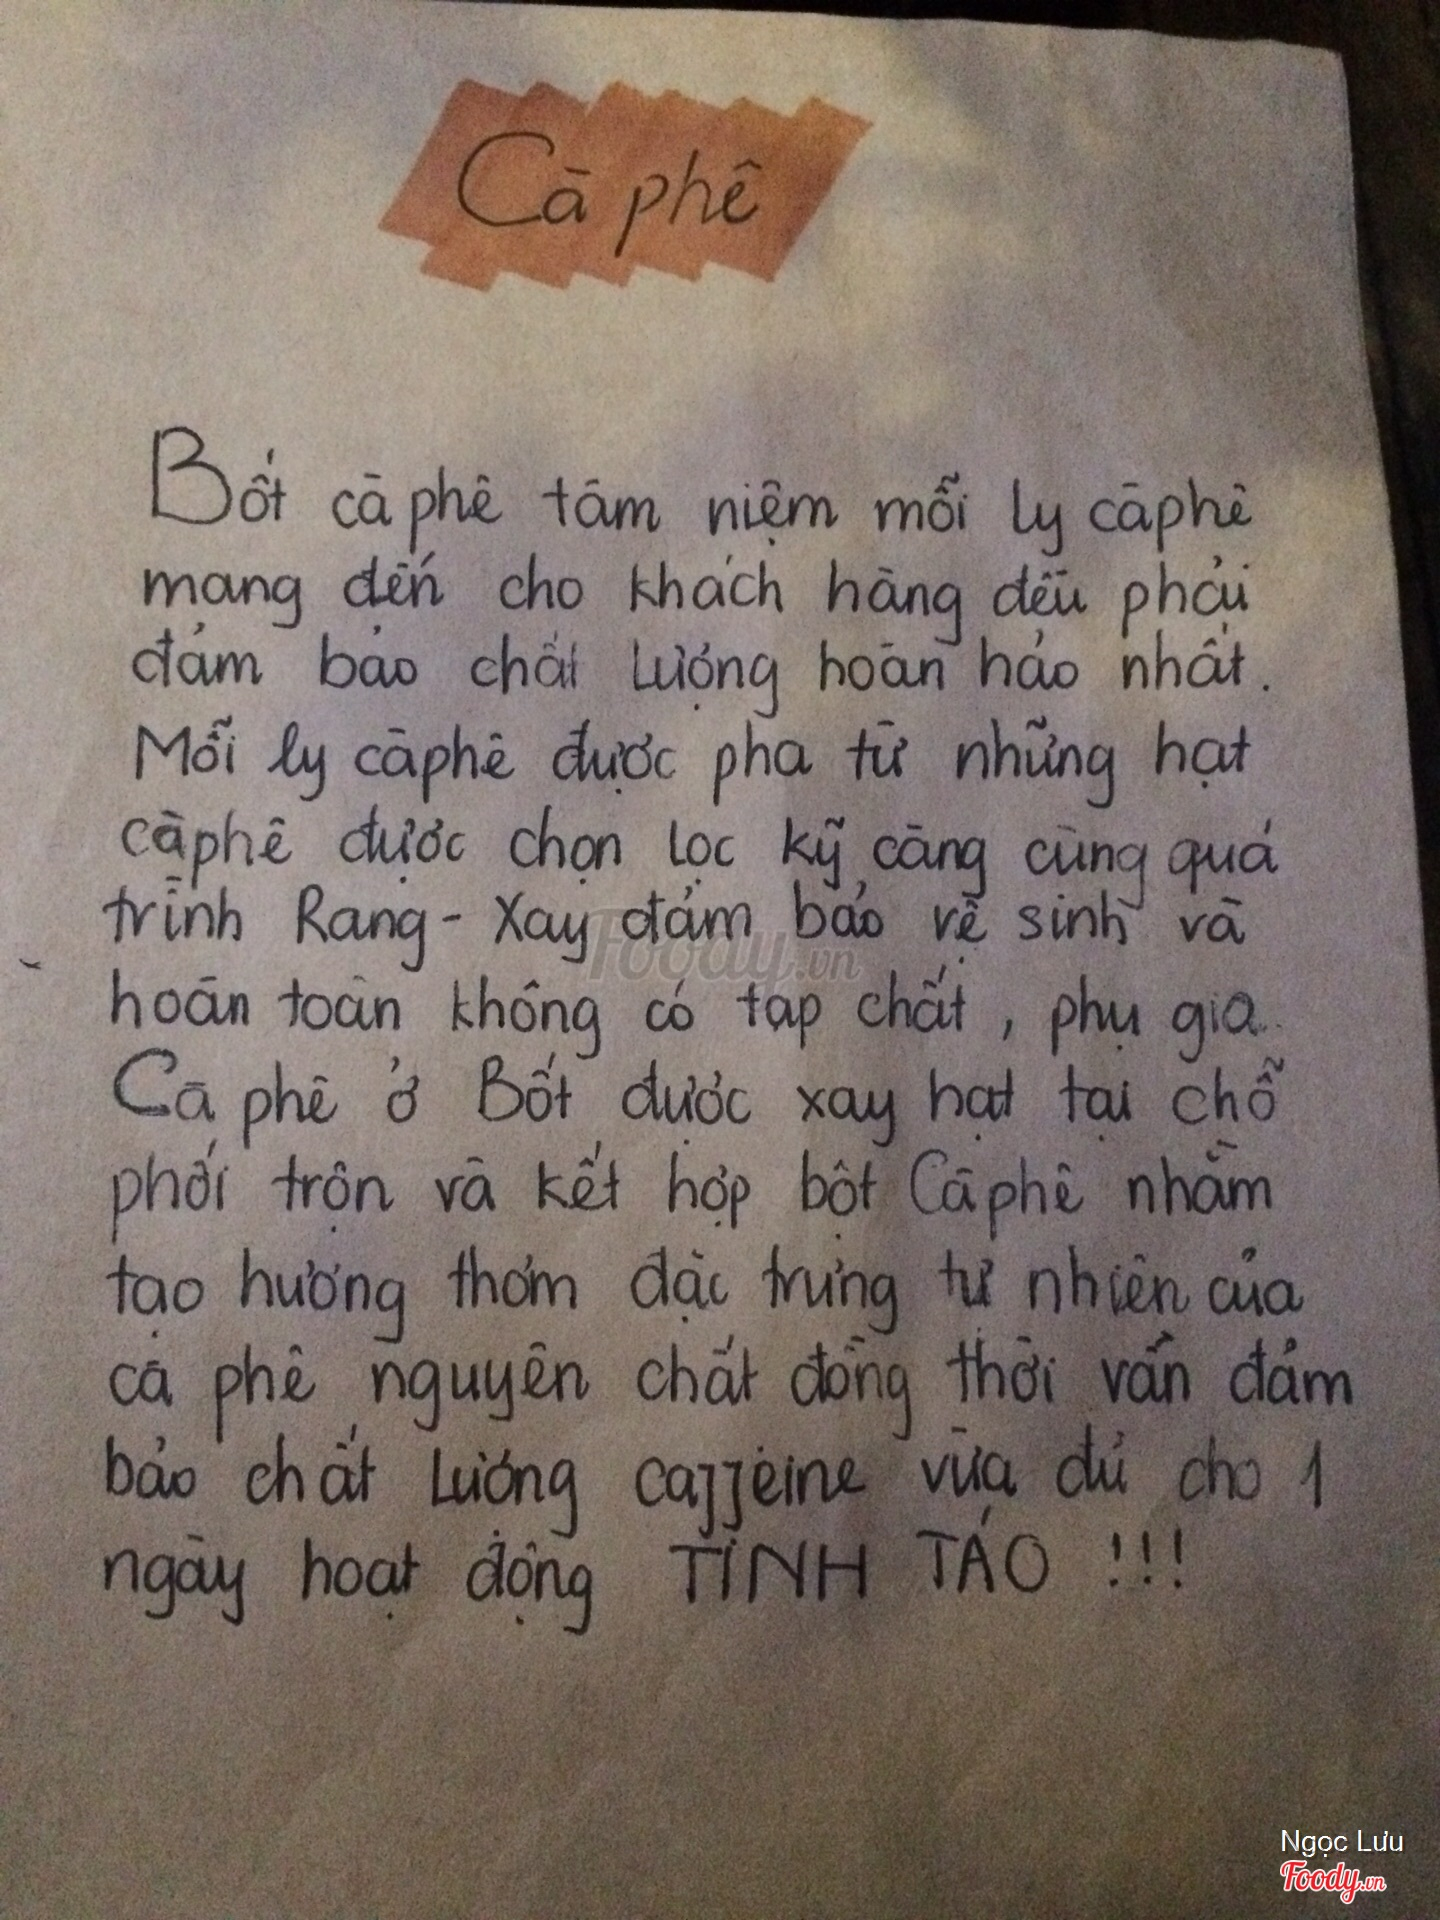 Cà phê
Bốt cà phê tâm niệm mỗi ly cà phê
mang đến cho khách hàng đều phải
đảm bảo chất lượng hoàn hảo nhất.
Mỗi ly cà phê được pha từ những hạt
cà phê được chọn lọc kỹ càng cùng quá
trình Rang - Xay đảm bảo vệ sinh và
hoàn toàn không có tạp chất, phụ gia..
Cà phê ở Bốt được xay hạt tại chỗ
phối trộn và kết hợp bột Cà phê nhằm
tạo hương thơm đặc trưng tự nhiên của
cà phê nguyên chất đồng thời vẫn đảm
bảo chất lượng caffeine vừa đủ cho 1
ngày hoạt động TỈNH TÁO !!!
Foody.vn
Ngọc Lưu
Foody.vn